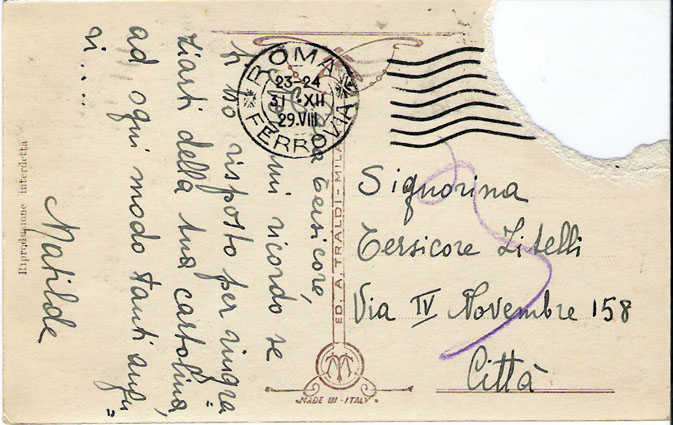 ROMA
FERROVIA
23-24
31 · XII
29. VIII
Tersicore,
mi ricordo se
ti ho risposto per ringra
ziarti della tua cartolina,
ad ogni modo tanti augu=
ri....
Matilde
Signorina
Tersicore Zitelli
Via IV Novembre 158
Città
Riproduzione interdetta
ED. A. TRALDI - MILA
MADE IN - ITALY